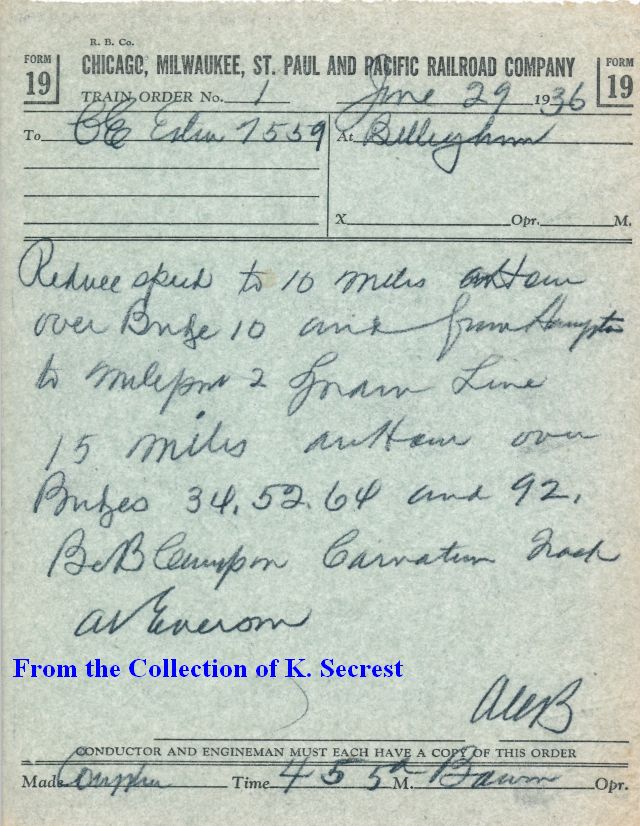 R. B. Co.
FORM 19
CHICAGO, MILWAUKEE, ST. PAUL AND PACIFIC RAILROAD COMPANY
FORM 19
TRAIN ORDER No. 1 June 29 1936
To C&E Extra 7559 At Bellingham
X Opr. M.
Reduce speed to 10 miles an Hour
over Bridge 10 and from Hampton
to Milepost 2 Lynden Line
15 miles an Hour over
Bridges 34, 52, 64 and 92.
B&B Camp on Carnation Track
at Everson
From the Collection of K. Secrest
CONDUCTOR AND ENGINEMAN MUST EACH HAVE A COPY OF THIS ORDER
Made Complete Time 4 55 a M. Opr.